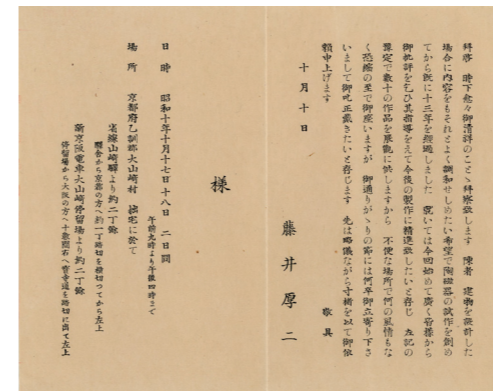 拝啓 時下愈々御清祥のことゝ拝察致します 陳者 建物を設計した
場合に内容をもそれとよく調和せしめたい希望で陶磁器の試作を創め
てから既に十三年を経過しました 就いては今回始めて廣く皆様から
御批評を乞ひ其指導をえて今後の製作に精進致したいと存じ 左記の
豫定で数十の作品を展観に供しますから 不便な場所で何の風情もな
く恐縮の至で御座いますが 御通りがゝりの節には何卒御立寄り下さ
いまして御叱正戴きたいと存じます 先は略儀ながら寸楮を以て御依
頼申上げます 敬具
十月十日
藤井厚二
様
日時 昭和十年十月十七日十八日 二日間
午前九時より午後四時まで
場所 京都府乙訓郡大山崎村 拙宅に於て
省線山崎驛より約二丁餘
驛舎から京都の方へ約一丁踏切を横切つてから左上
新京阪電車大山崎停留場より約二丁餘
停留場から大阪の方へ十数間右へ寳寺道を踏切に出て左上